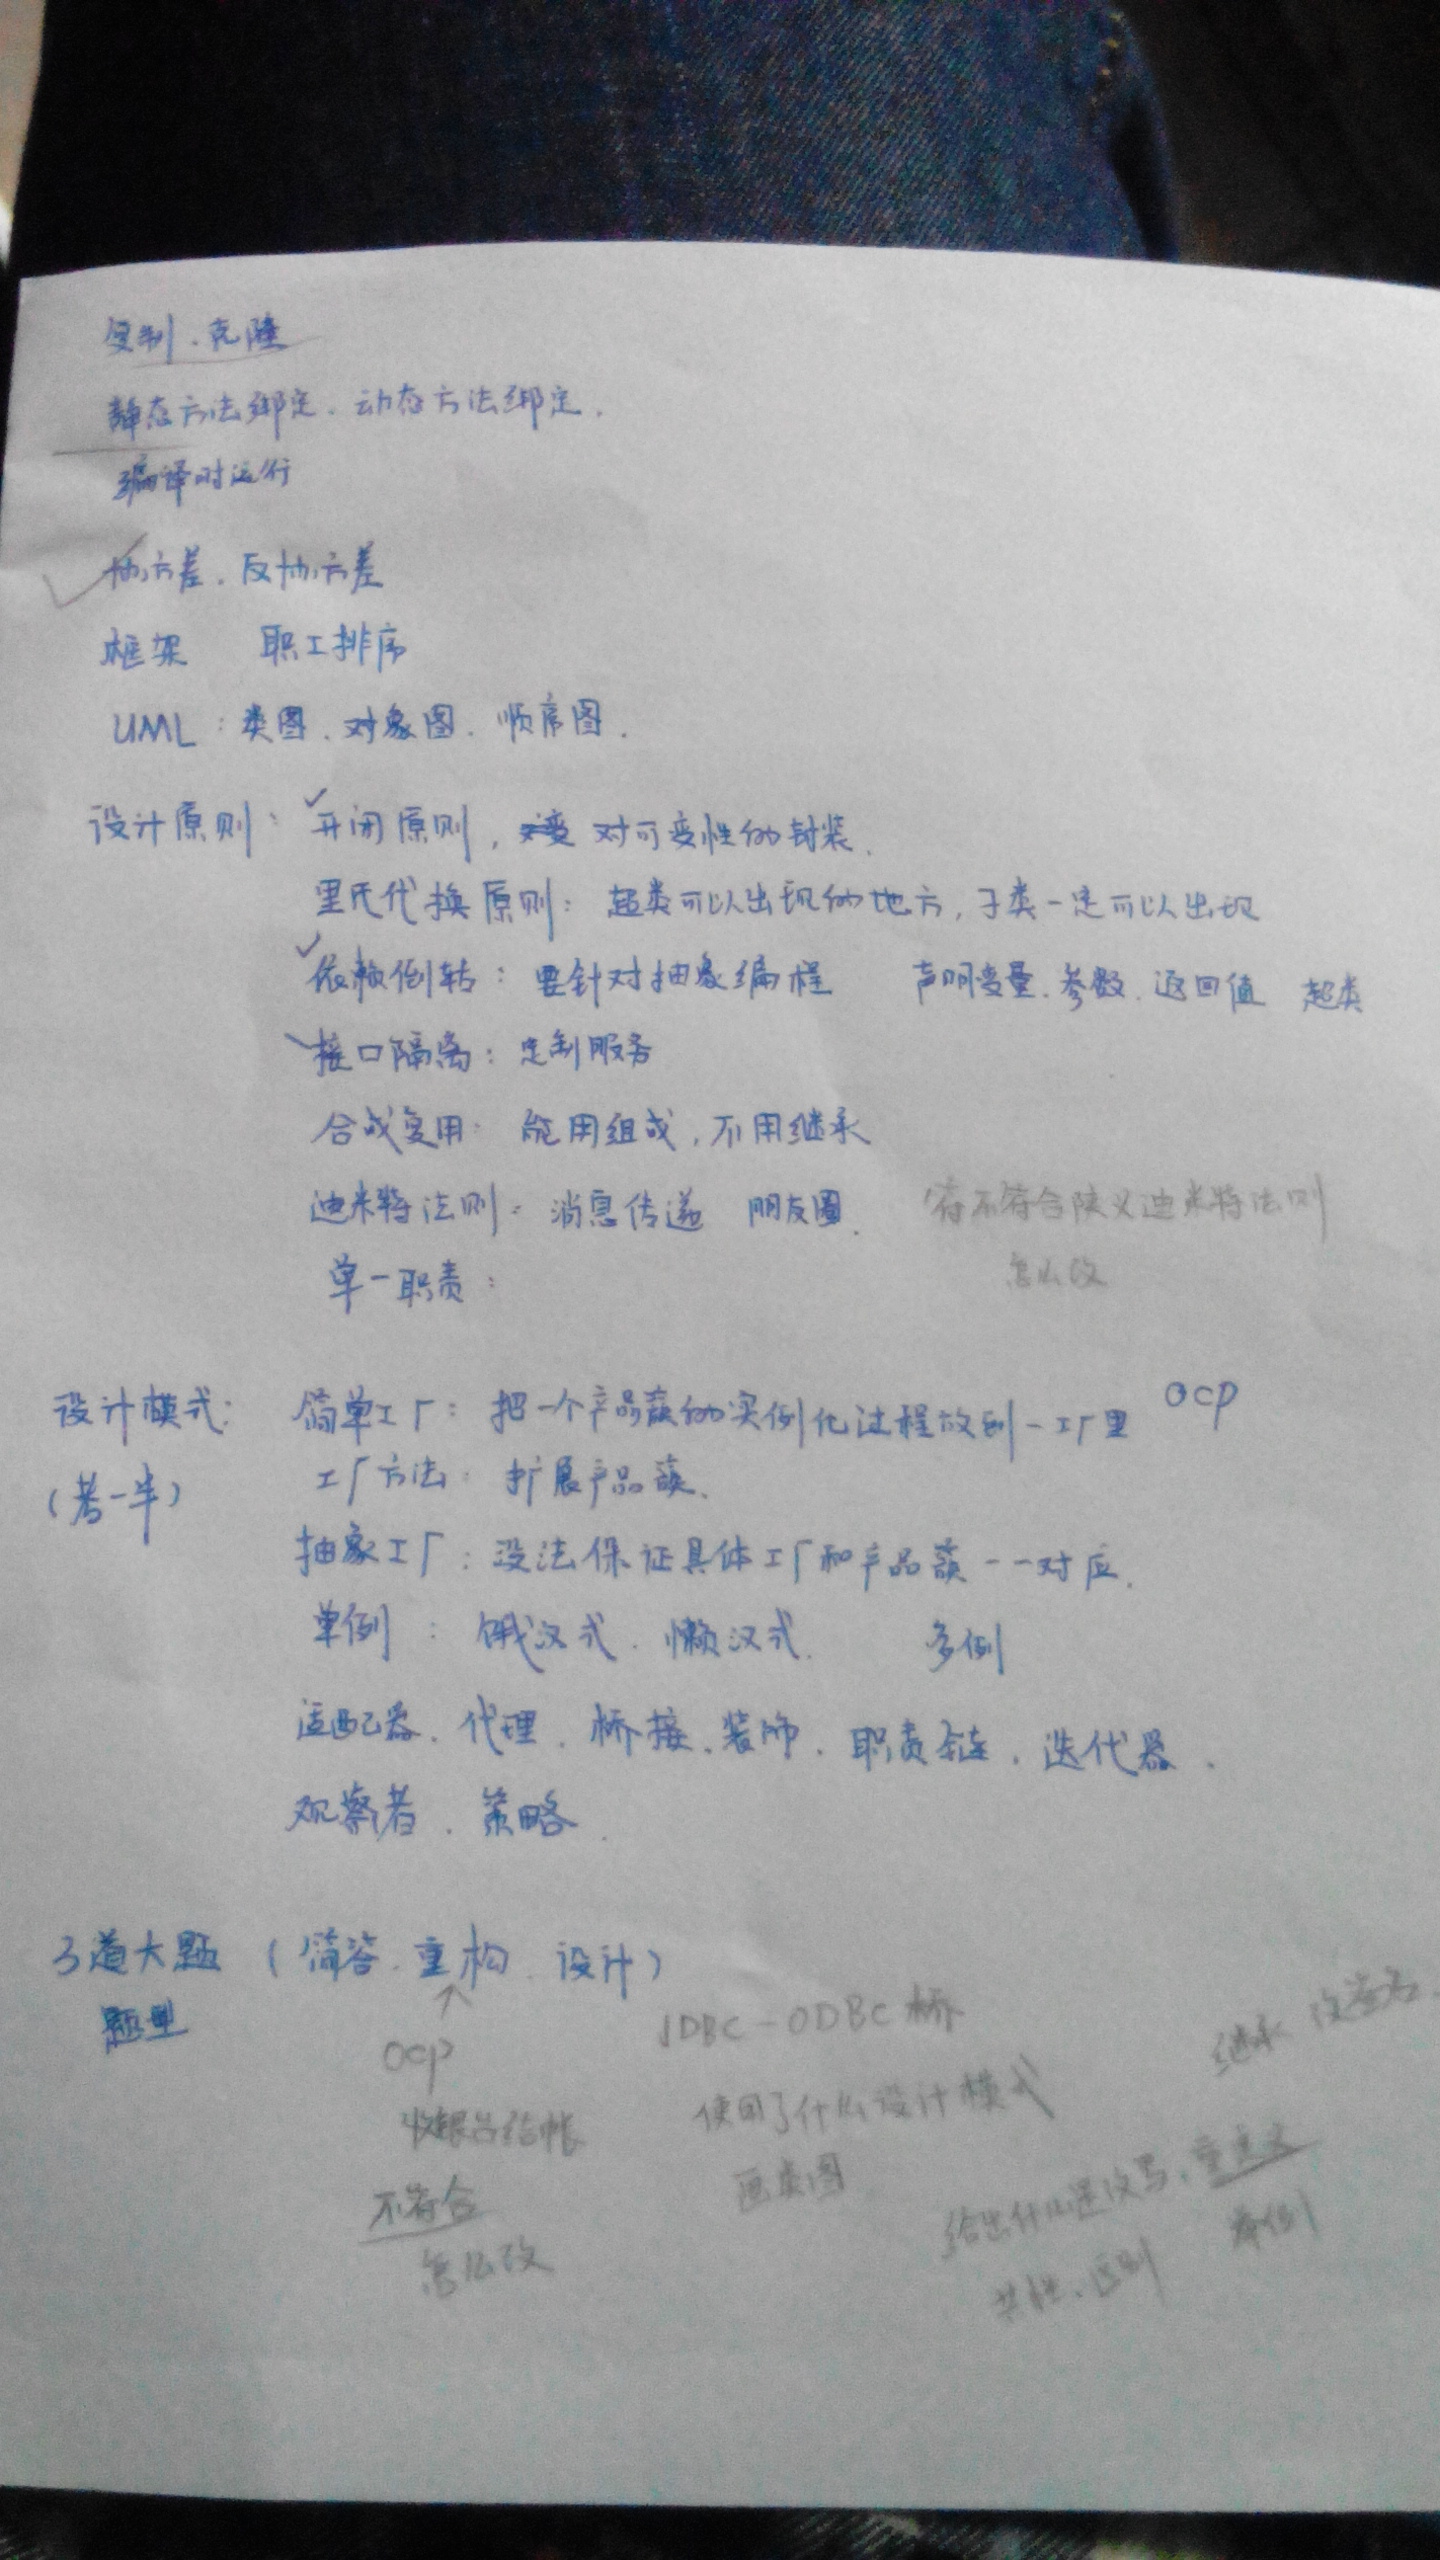 复制、克隆
静态方法绑定、动态方法绑定.
编译时运行
协方差、反协方差
框架 职工排序
UML: 类图、对象图、顺序图.
设计原则: 开闭原则, 对可变性的封装.
里氏代换原则: 超类可以出现的地方, 子类一定可以出现
依赖倒转: 要针对抽象编程 声明变量、参数、返回值 超类
接口隔离: 定制服务
合成复用: 能用组成, 不用继承
迪米特法则: 消息传递 朋友圈. 符不符合狭义迪米特法则
怎么改
单一职责:
设计模式: 简单工厂: 把一个产品族的实例化过程放到一工厂里 OCP
(考一半) 工厂方法: 扩展产品族.
抽象工厂: 没法保证具体工厂和产品族一一对应.
单例: 饿汉式、懒汉式. 多例
适配器、代理、桥接、装饰、职责链、迭代器.
观察者、策略.
3道大题 (简答、重构、设计)
题型
OCP JDBC-ODBC桥 继承
收银台结帐 使用了什么设计模式
不符合 画类图 给出什么是改写、重定义
怎么改 共性、区别 举例